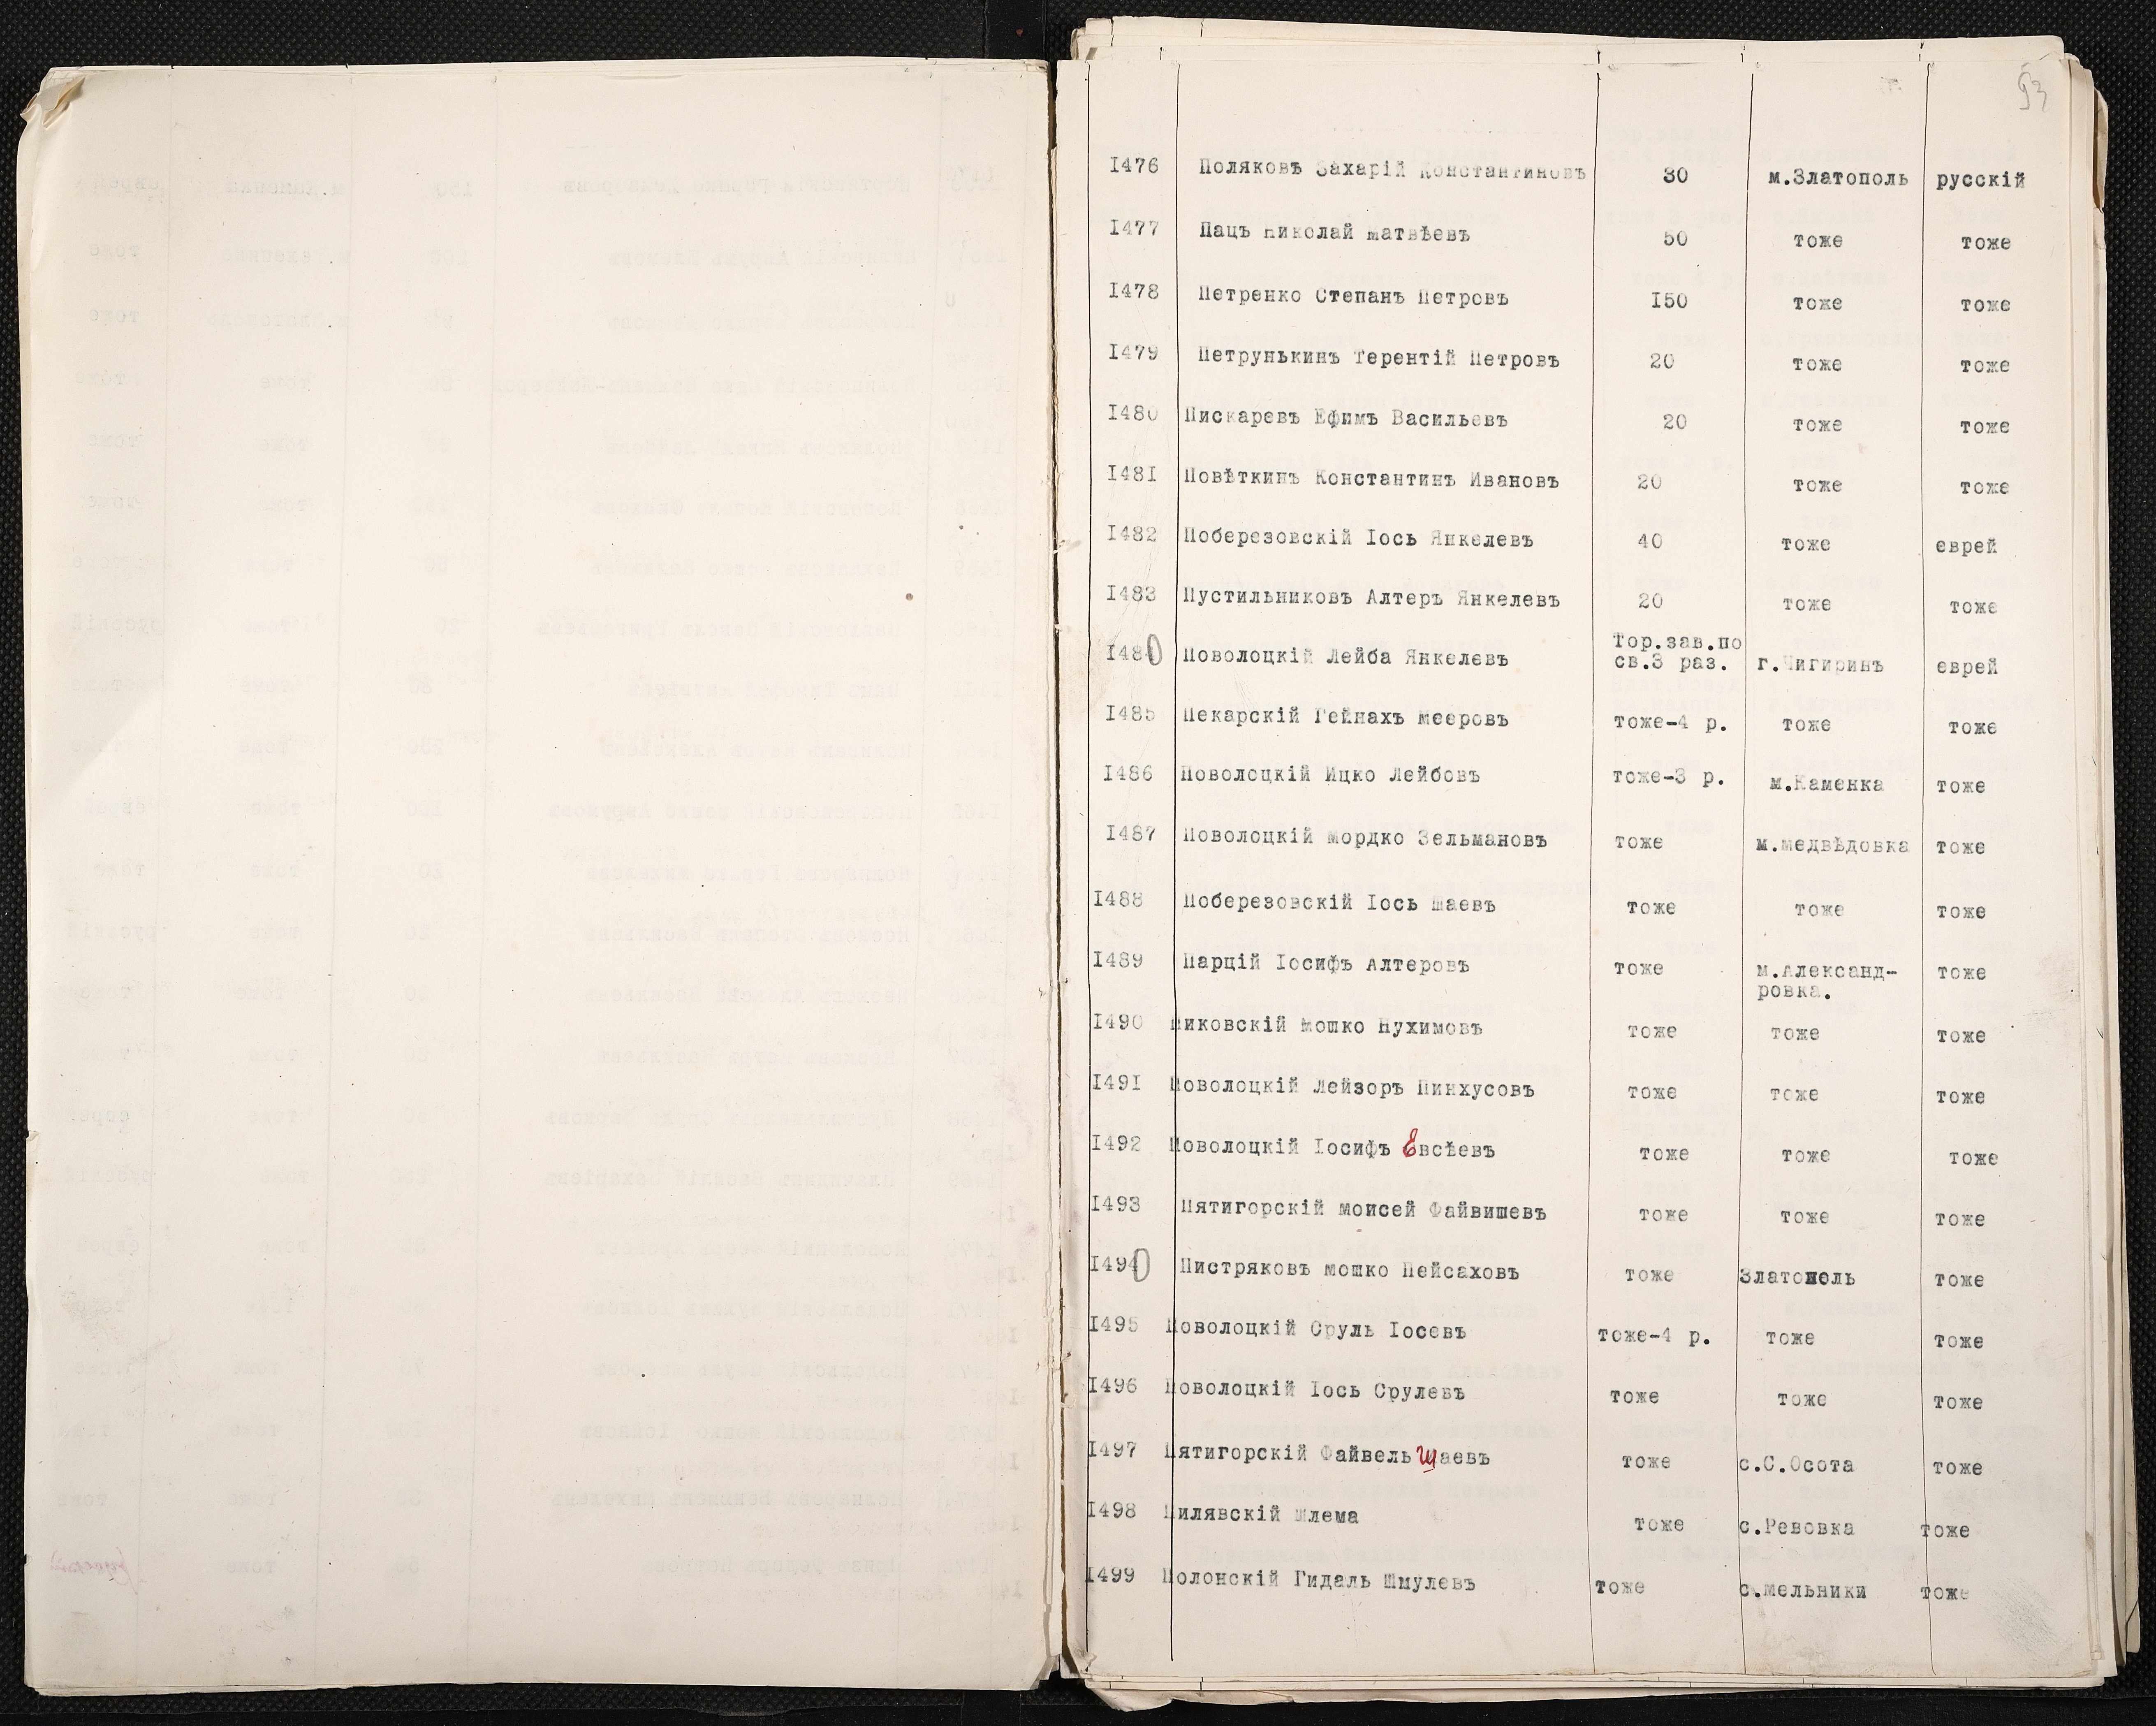 93
1476 Поляковъ Захарій Константиновъ 30 м.Златополь русскій
1477 Пацъ Николай Матвѣевъ 50 тоже тоже
1478 Петренко Степанъ Петровъ 150 тоже тоже
1479 Петрунькинъ Терентій Петровъ 20 тоже тоже
1480 Пискаревъ Ефимъ Васильевъ 20 тоже тоже
1481 Повѣткинъ Константинъ Ивановъ 20 тоже тоже
1482 Поберезовскій Іось Янкелевъ 40 тоже еврей
1483 Пустильниковъ Алтеръ Янкелевъ 20 тоже тоже
Тор.зав.по
1484 Поволоцкій Лейба Янкелевъ св.3 раз. г.Чигиринъ еврей
1485 Пекарскій Гейнахъ Мееровъ тоже-4 р. тоже тоже
1486 Поволоцкій Ицко Лейбовъ тоже-3 р. м.Каменка тоже
1487 Поволоцкій Мордко Зельмановъ тоже м.Медвѣдовка тоже
1488 Поберезовскій Іось Шаевъ тоже тоже тоже
1489 Парцій Іосифъ Алтеровъ тоже м.Александ-
ровка. тоже
1490 Пиковскій Мошко Нухимовъ тоже тоже тоже
1491 Поволоцкій Лейзоръ Пинхусовъ тоже тоже тоже
1492 Поволоцкій Іосифъ Евсѣевъ тоже тоже тоже
1493 Пятигорскій Моисей Файвишевъ тоже тоже тоже
1494 Пистряковъ Мошко Пейсаховъ тоже Златополь тоже
1495 Поволоцкій Сруль Іосевъ тоже-4 р. тоже тоже
1496 Поволоцкій Іось Срулевъ тоже тоже тоже
1497 Пятигорскій Файвель Шаевъ тоже с.С.Осота тоже
1498 Пилявскій Шлема тоже с.Ревовка тоже
1499 Полонскій Гидаль Шмулевъ тоже с.Мельники тоже